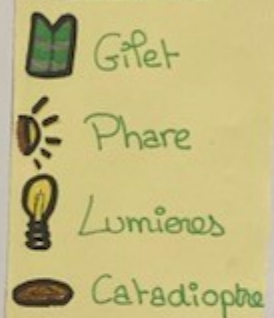 Gilet
Phare
Lumieres
Catadioptre